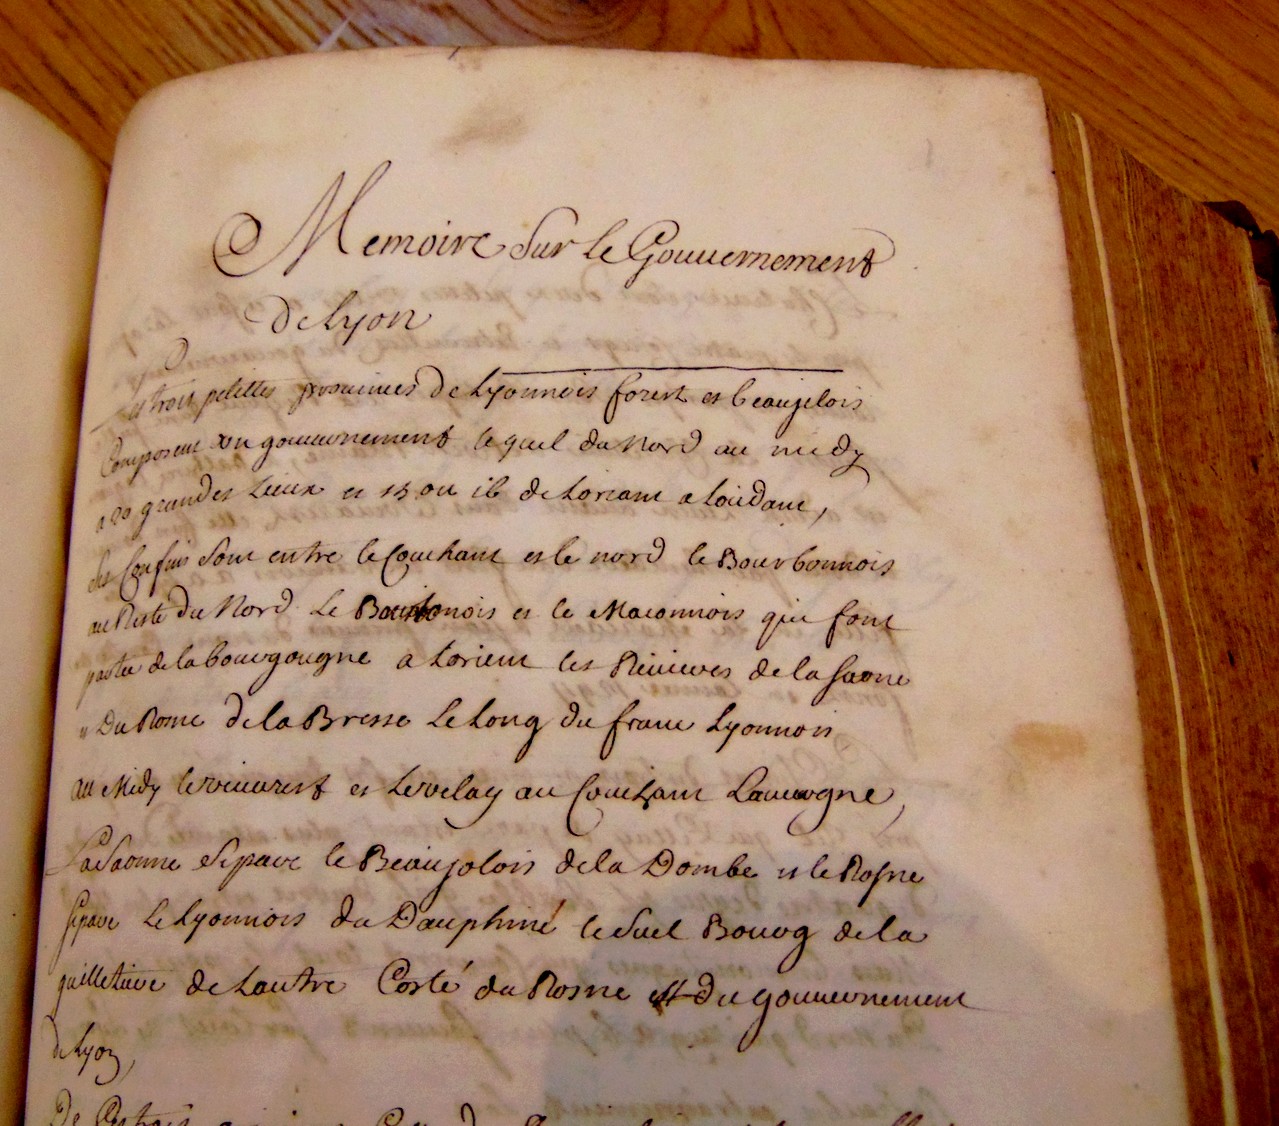 Memoire Sur le Gouuernement
de Lyon
Les trois petittes prouinces de Lyonnois forest et beaujelois
Composent un gouuernement lequel du Nord au midy
a 20 grandes Lieux et 15 ou 16 de Loriant a Loccidant,
Ses Confins Sont entre le Couchant et le nord le Bourbonnois
au Reste du Nord Le et le Maconnois qui font
partie de la bourgougne a Lorient les Riuieres de la Saone
" Du Rosne de la Bresse Le Long du franc Lyonnois
au Midy le viuarest et Levelay au Couchant Lauuergne,
La Saonne Separe le Beaujolois de la Dombe et le Rosne
Separe Le Lyonnois du Dauphiné le Suel Bourg de la
guillettiere de Lautre Costé du Rosne est du gouuernement
de Lyon,